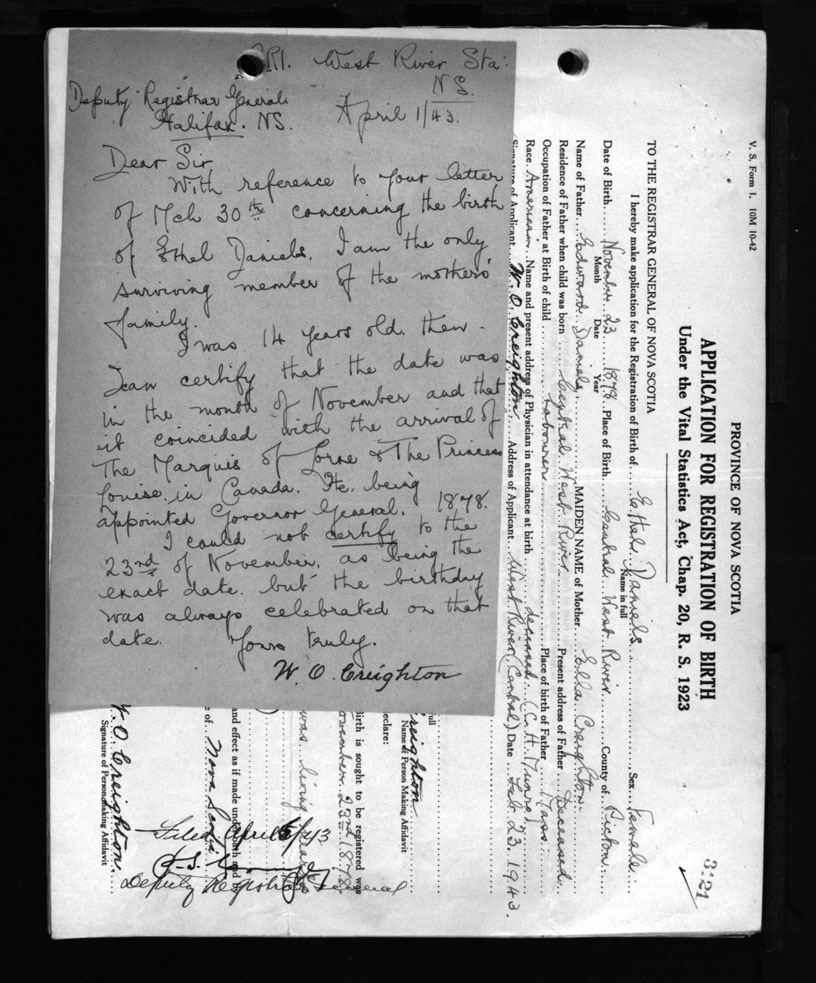 RR1. West River Sta:
N S.
Deputy Registrar General
Halifax. NS.
April 1/43.
Dear Sir
With reference to your letter
of Mch 30th concerning the birth
of Ethel Daniels. I am the only
surviving member of the mothers
family.
I was 14 years old then.
I can certify that the date was
in the month of November and that
it coincided with the arrival of
The Marquis of Lorne & The Princess
Louise in Canada. He being
appointed Governor General. 1878.
I could not certify to the
23rd of November, as being the
exact date but the birthday
was always celebrated on that
date. Yours truly.
W. O. Creighton
V. S. Form 1. 10M 10-42
3:21
PROVINCE OF NOVA SCOTIA
APPLICATION FOR REGISTRATION OF BIRTH
Under the Vital Statistics Act, Chap. 20, R. S. 1923
TO THE REGISTRAR GENERAL OF NOVA SCOTIA
I hereby make application for the Registration of Birth of Ethel Daniels Sex Female
Name in full
Date of Birth November 23 1878 Place of Birth Central West River County of Pictou
Month Date Year
Name of Father Edward Daniels MAIDEN NAME of Mother Ella Creighton
Residence of Father when child was born Central West River Present address of Father Deceased
Occupation of Father at Birth of child Labourer Place of birth of Father Mass.
Race American Name and present address of Physician in attendance at birth deceased (C. H. Munro)
Signature of Applicant W. O. Creighton Address of Applicant West River (Central) Date Feb 23 1943.
full
Creighton
Name of Person Making Affidavit
declare:
Birth is sought to be registered was
November 23rd 1878
was living
and effect as if made under oath and
of Nova Scotia
W. O. Creighton.
Signature of Person making Affidavit
Filed April 6/43
Deputy Registrar General